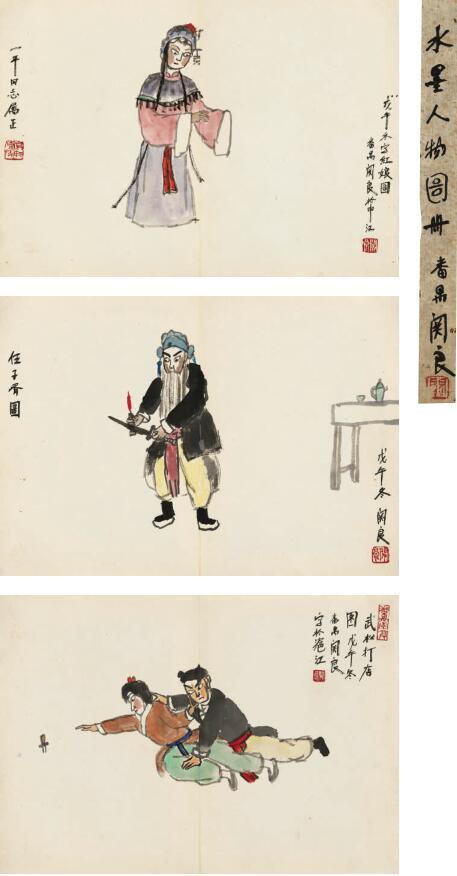 一平同志属正
戊午冬写红娘图
番禺関良於申江
水墨人物圖冊 番禺関良
伍子胥圖
戊午冬 関良
武松打店
圖 戊午冬
番禺関良
写於滬江